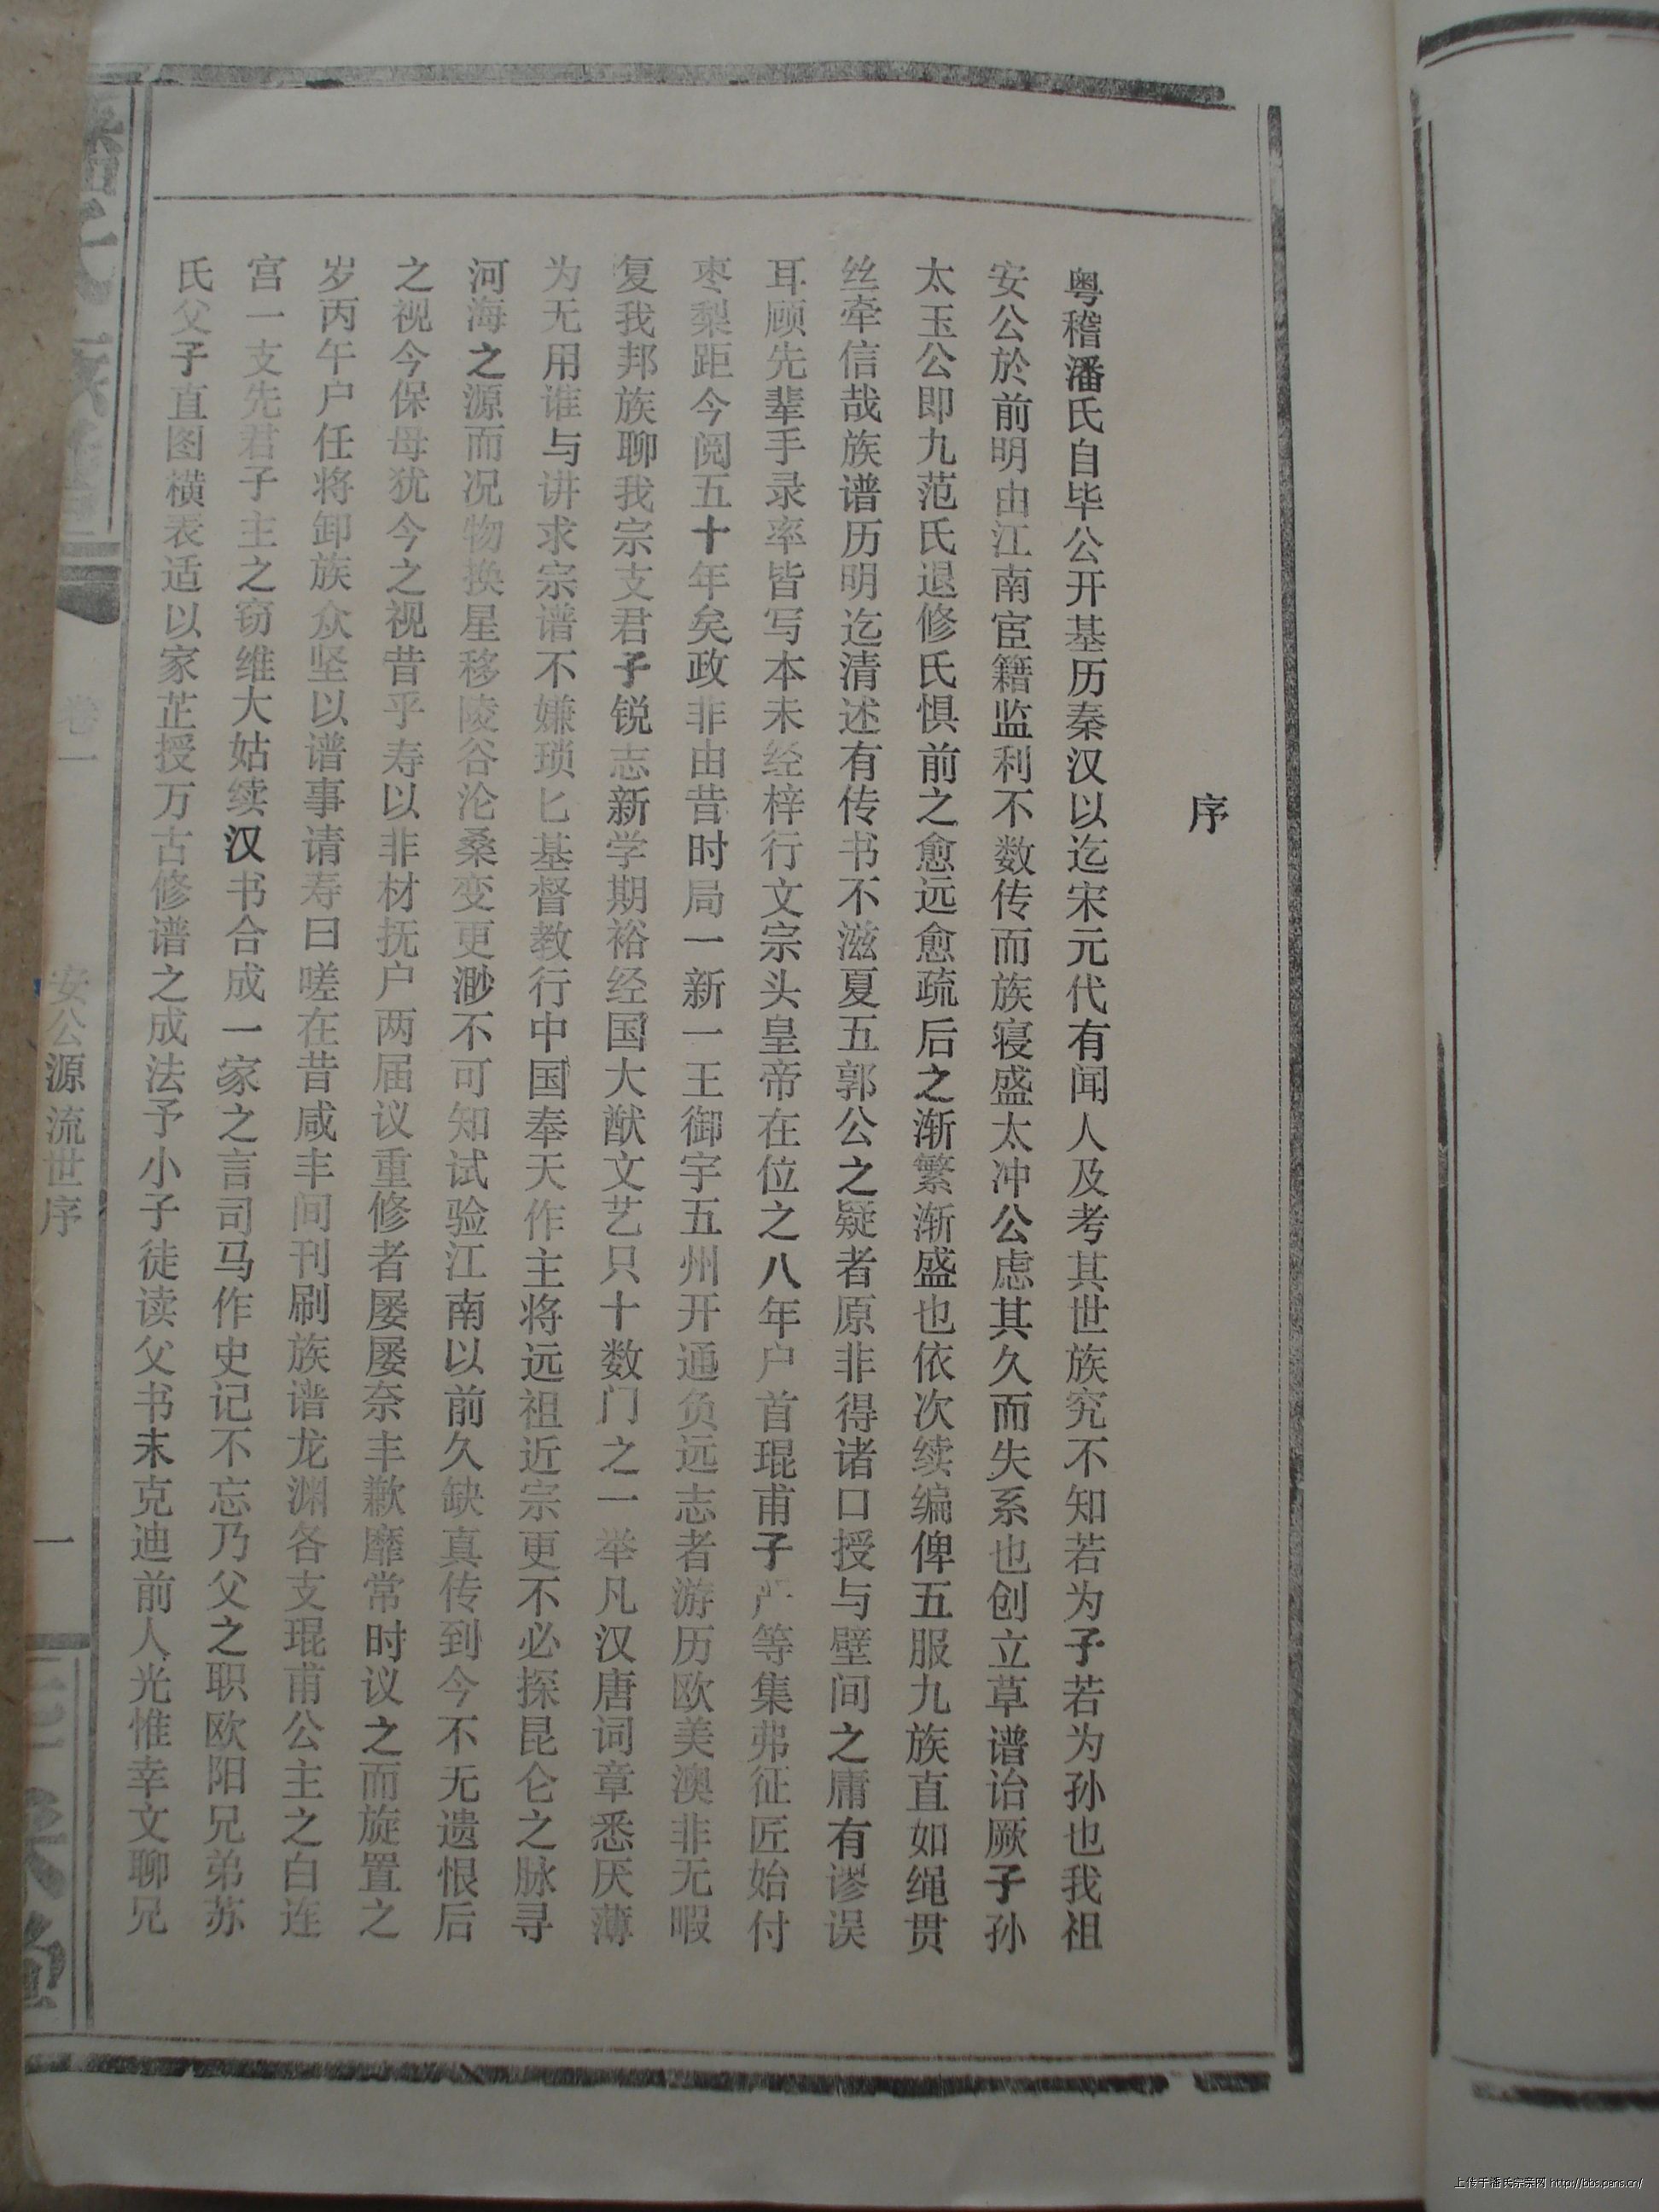 序
粤稽潘氏自毕公开基历秦汉以迄宋元代有闻人及考其世族究不知若为子若为孙也我祖
安公於前明由江南宦籍监利不数传而族寝盛太冲公虑其久而失系也创立草谱诒厥子孙
太玉公即九范氏退修氏惧前之愈远愈疏后之渐繁渐盛也依次续编俾五服九族直如绳贯
丝牵信哉族谱历明迄清述有传书不滋夏五郭公之疑者原非得诸口授与壁间之庸有谬误
耳顾先辈手录率皆写本未经梓行文宗头皇帝在位之八年户首琨甫子严等集弗征匠始付
枣梨距今阅五十年矣政非由昔时局一新一王御宇五州开通负远志者游历欧美澳非无暇
复我邦族聊我宗支君子锐志新学期裕经国大猷文艺只十数门之一举凡汉唐词章悉厌薄
为无用谁与讲求宗谱不嫌琐匕基督教行中国奉天作主将远祖近宗更不必探昆仑之脉寻
河海之源而况物换星移陵谷沦桑变更渺不可知试验江南以前久缺真传到今不无遗恨后
之视今保母犹今之视昔乎寿以非材抚户两届议重修者屡屡奈丰歉靡常时议之而旋置之
岁丙午户任将卸族众坚以谱事请寿曰嗟在昔咸丰间刊刷族谱龙渊各支琨甫公主之白连
宫一支先君子主之窃维大姑续汉书合成一家之言司马作史记不忘乃父之职欧阳兄弟苏
氏父子直图横表适以家芷授万古修谱之成法予小子徒读父书未克迪前人光惟幸文聊兄
潘氏族谱
卷一
安公源流世序
一
上传于潘氏宗亲网 http://bbs.pans.cn/